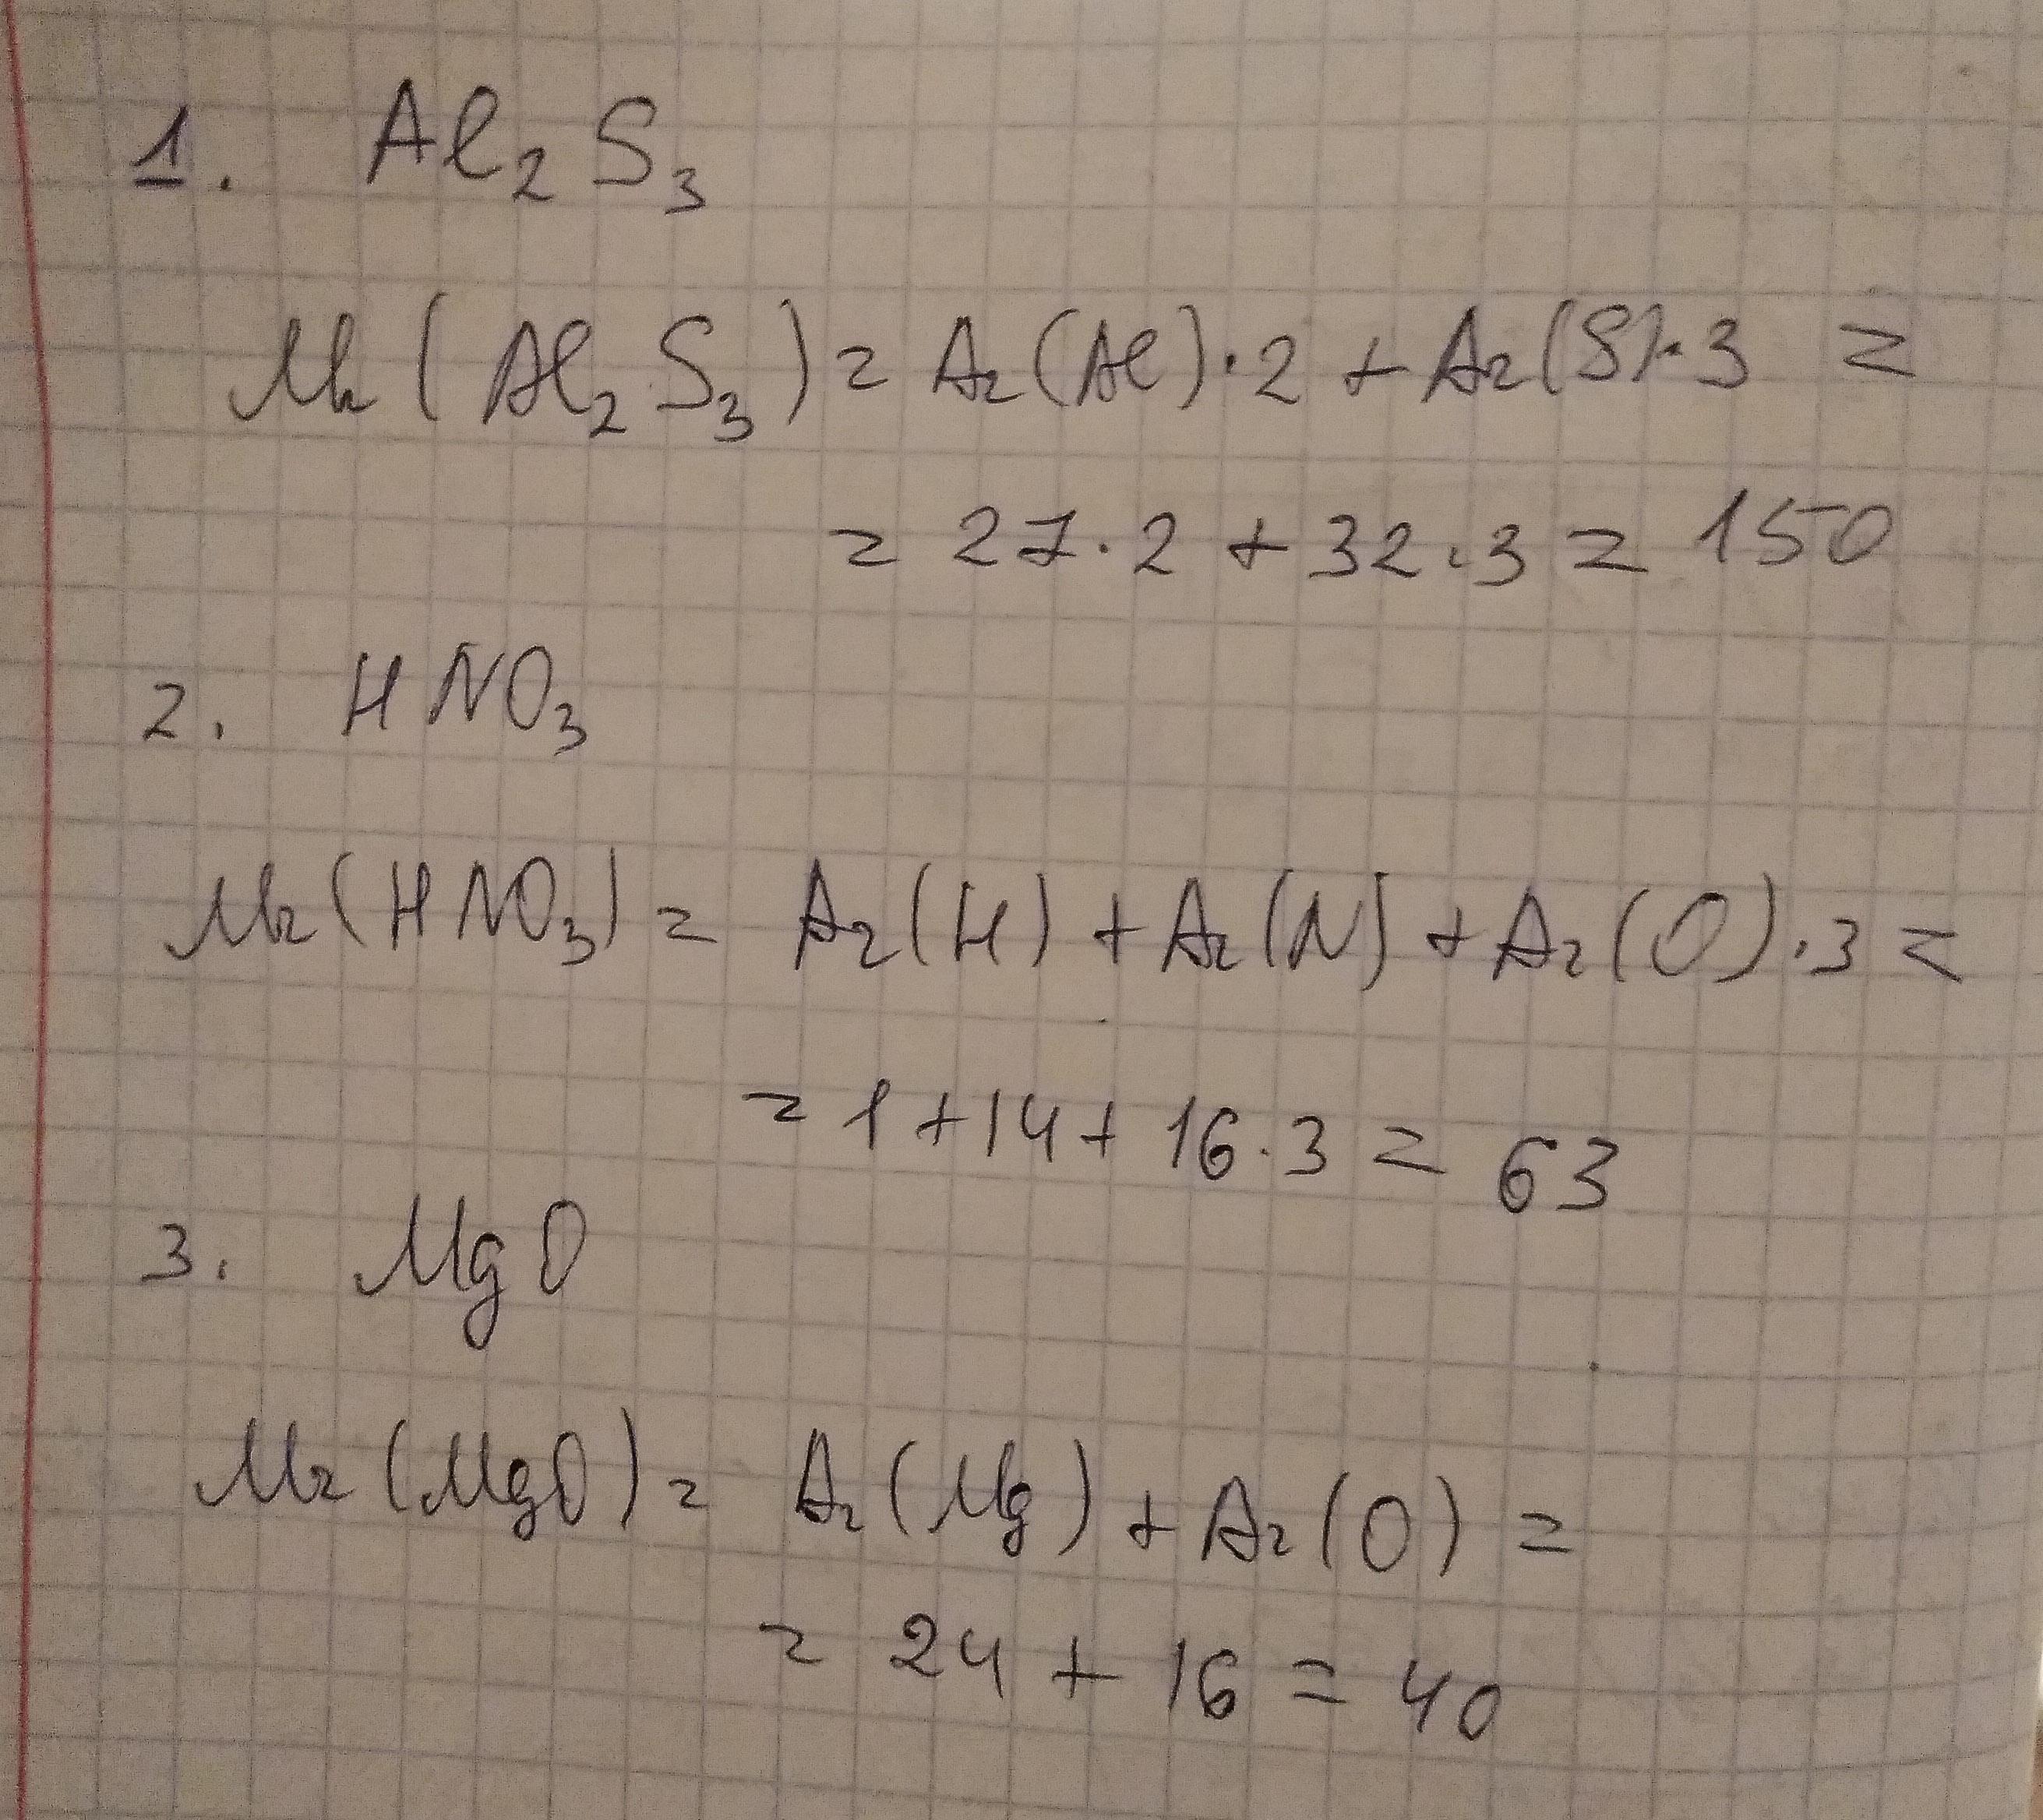 1. Al₂S₃
Mr(Al₂S₃) = Ar(Al)·2 + Ar(S)·3 =
= 27·2 + 32·3 = 150
2. HNO₃
Mr(HNO₃) = Ar(H) + Ar(N) + Ar(O)·3 =
= 1 + 14 + 16·3 = 63
3. MgO
Mr(MgO) = Ar(Mg) + Ar(O) =
= 24 + 16 = 40